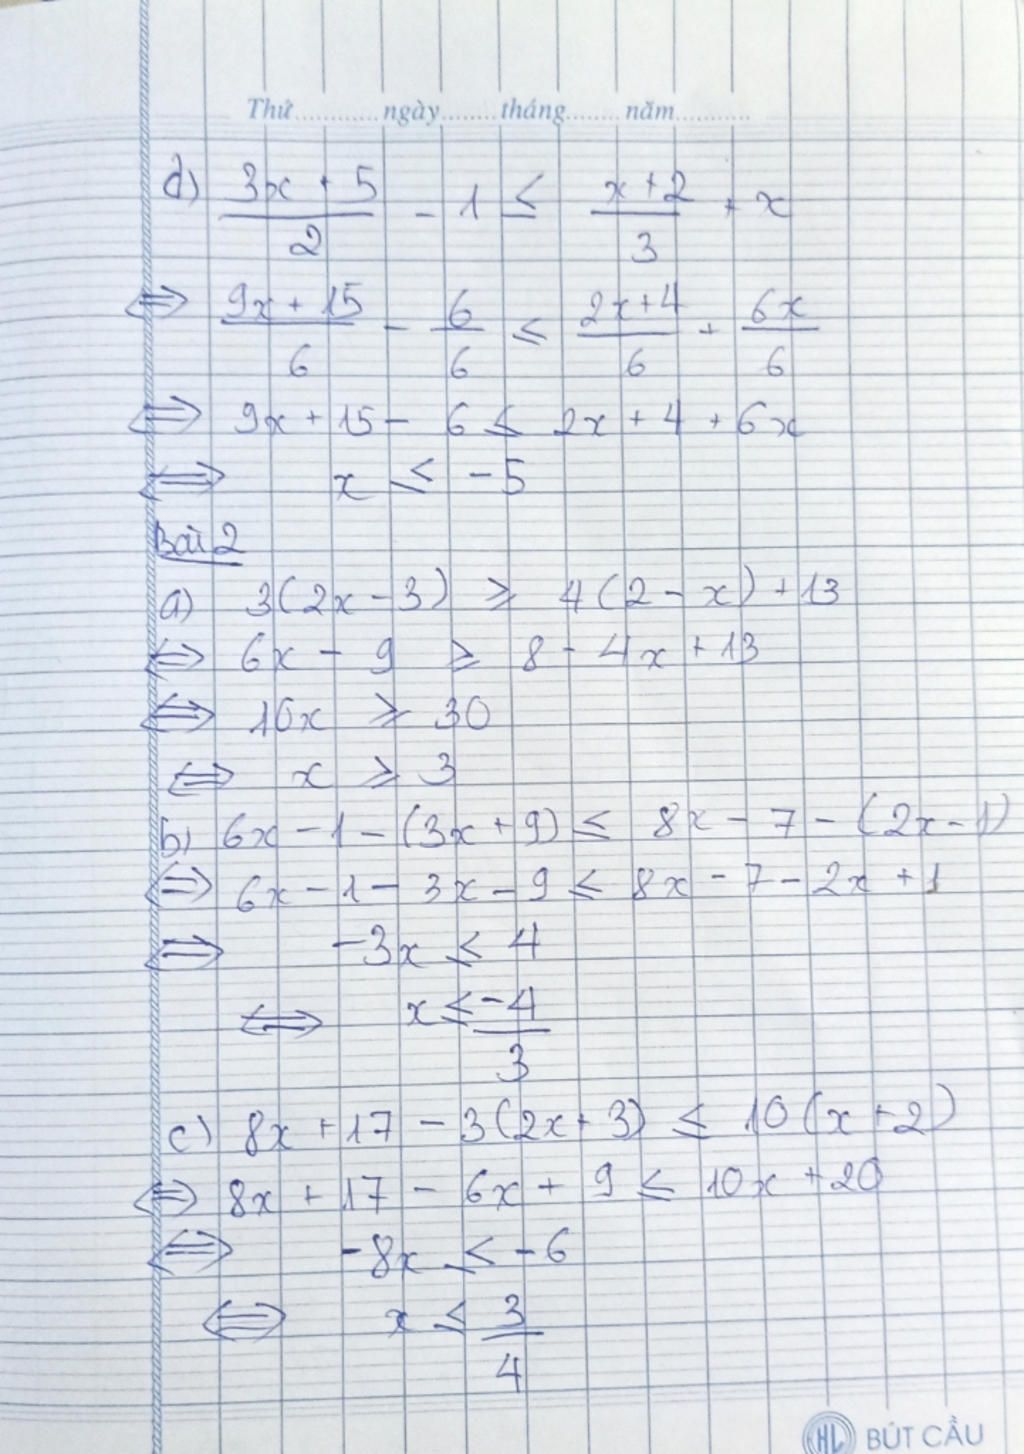 Thứ............ngày........tháng........năm...........
d) (3x + 5)/2 - 1 ≤ (x + 2)/3 + x
⇔ (9x + 15)/6 - 6/6 ≤ (2x + 4)/6 + 6x/6
⇔ 9x + 15 - 6 ≤ 2x + 4 + 6x
⇔ x ≤ -5
Bài 2
a) 3(2x - 3) ≥ 4(2 - x) + 13
⇔ 6x - 9 ≥ 8 - 4x + 13
⇔ 10x ≥ 30
⇔ x ≥ 3
b) 6x - 1 - (3x + 9) ≤ 8x - 7 - (2x - 1)
⇔ 6x - 1 - 3x - 9 ≤ 8x - 7 - 2x + 1
⇔ -3x ≤ 4
⇔ x ≤ -4/3
c) 8x + 17 - 3(2x + 3) ≤ 10(x + 2)
⇔ 8x + 17 - 6x + 9 ≤ 10x + 20
⇔ -8x ≤ -6
⇔ x ≤ 3/4
HL BÚT CẦU